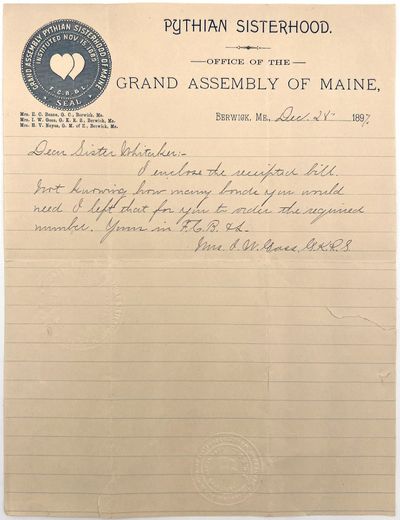 GRAND ASSEMBLY PYTHIAN SISTERHOOD OF MAINE
INSTITUTED NOV. 15, 1889
F.C.B.&L.
SEAL
PYTHIAN SISTERHOOD.
OFFICE OF THE
GRAND ASSEMBLY OF MAINE,
Mrs. E. C. Beane, G. C., Berwick, Me.
Mrs. I. W. Goss, G. K. R. S., Berwick, Me.
Mrs. H. V. Keyes, G. M. of E., Berwick, Me.
BERWICK, ME., Dec. 1897.
Dear Sister Whitaker:-
I enclose the receipted bill.
Not knowing how many bonds you would
need I left that for you to order the required
number. Yours in F.C.B. &L.
Mrs. I. W. Goss, G.K.R.S.